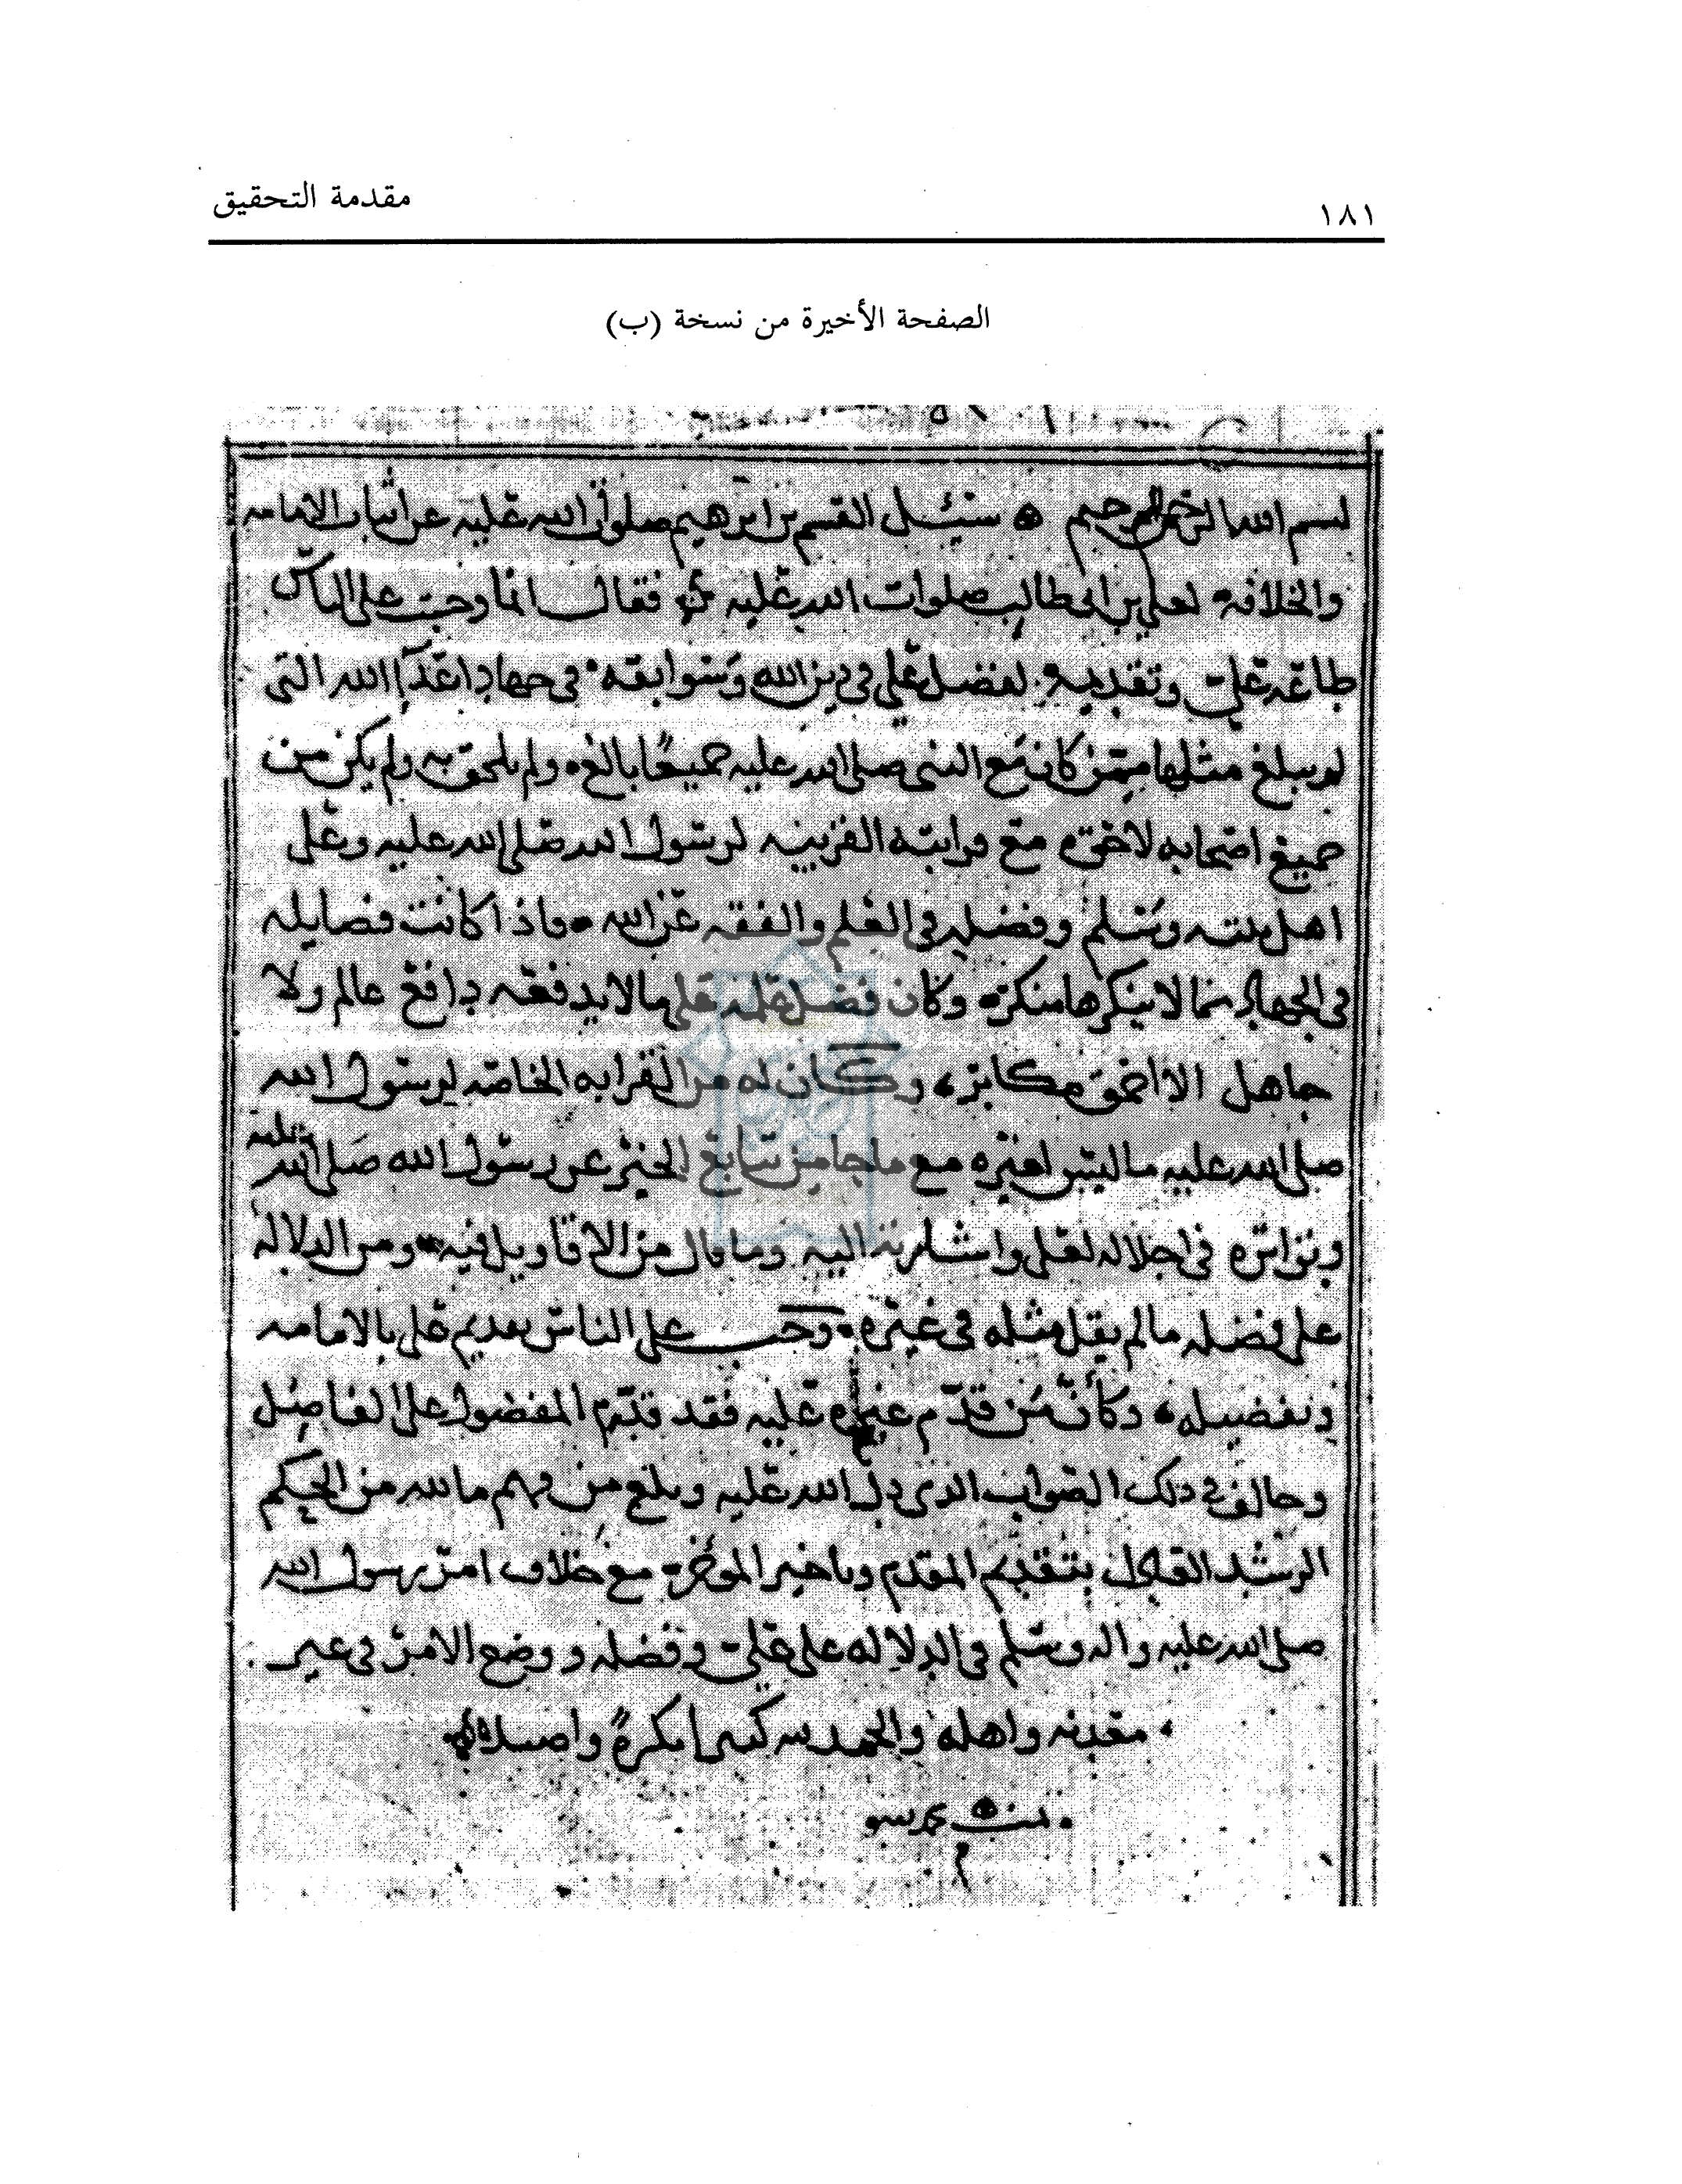 مقدمة التحقيق
١٨١
الصفحة الأخيرة من نسخة (ب)
بسم الله الرحمن الرحيم سئل القسم بن ابرهيم صلوات الله عليه عن اثبات الامامه
والخلافه لعلي بن ابي طالب صلوات الله عليه فقال انما وجبت على الناس
طاعة علي وتقديمه لفضل علي في دين الله وسوابقه في جهاد اعداء الله التي
لم يبلغ مثلها ممن كان مع النبي صلى الله عليه جميعا بالغ ولم يلحق به ولم يكن من
جميع اصحابه لاحق مع قرابته القريبه لرسول الله صلى الله عليه وعلى
اهل بيته وسلم وفضله في العلم والفقه عن الله فاذا كانت فضايله
في الجهاد مما لا ينكرها منكر وكان فضل علمه على ما لا يدفعه دافع عالم ولا
جاهل الا احمق مكابر وكان له من القرابه الخاصه لرسول الله
صلى الله عليه ما ليس لغيره مع ما جا من سايع الخبر عن رسول الله صلى الله عليه
وتواتره في اجلاله لعلي واشارته اليه وما قال من الاقاويل فيه ومن الدلاله
على فضله ما لم يقل مثله في غيره وجب على الناس تقديم علي بالامامه
وتفضيله وكان من قدم غيره عليه فقد قدم المفضول على الفاضل
وخالف في ذلك الصواب الذي دل الله عليه وبلغ من فهم ما لله من الحكم
الرشيد القايل بتقديم المقدم وتاخير المؤخر مع خلاف امر رسول الله
صلى الله عليه واله وسلم في الدلاله على علي وفضله ووضع الامر في غير
معدنه واهله والحمد لله كثيرا بكرة واصيلا
تمت